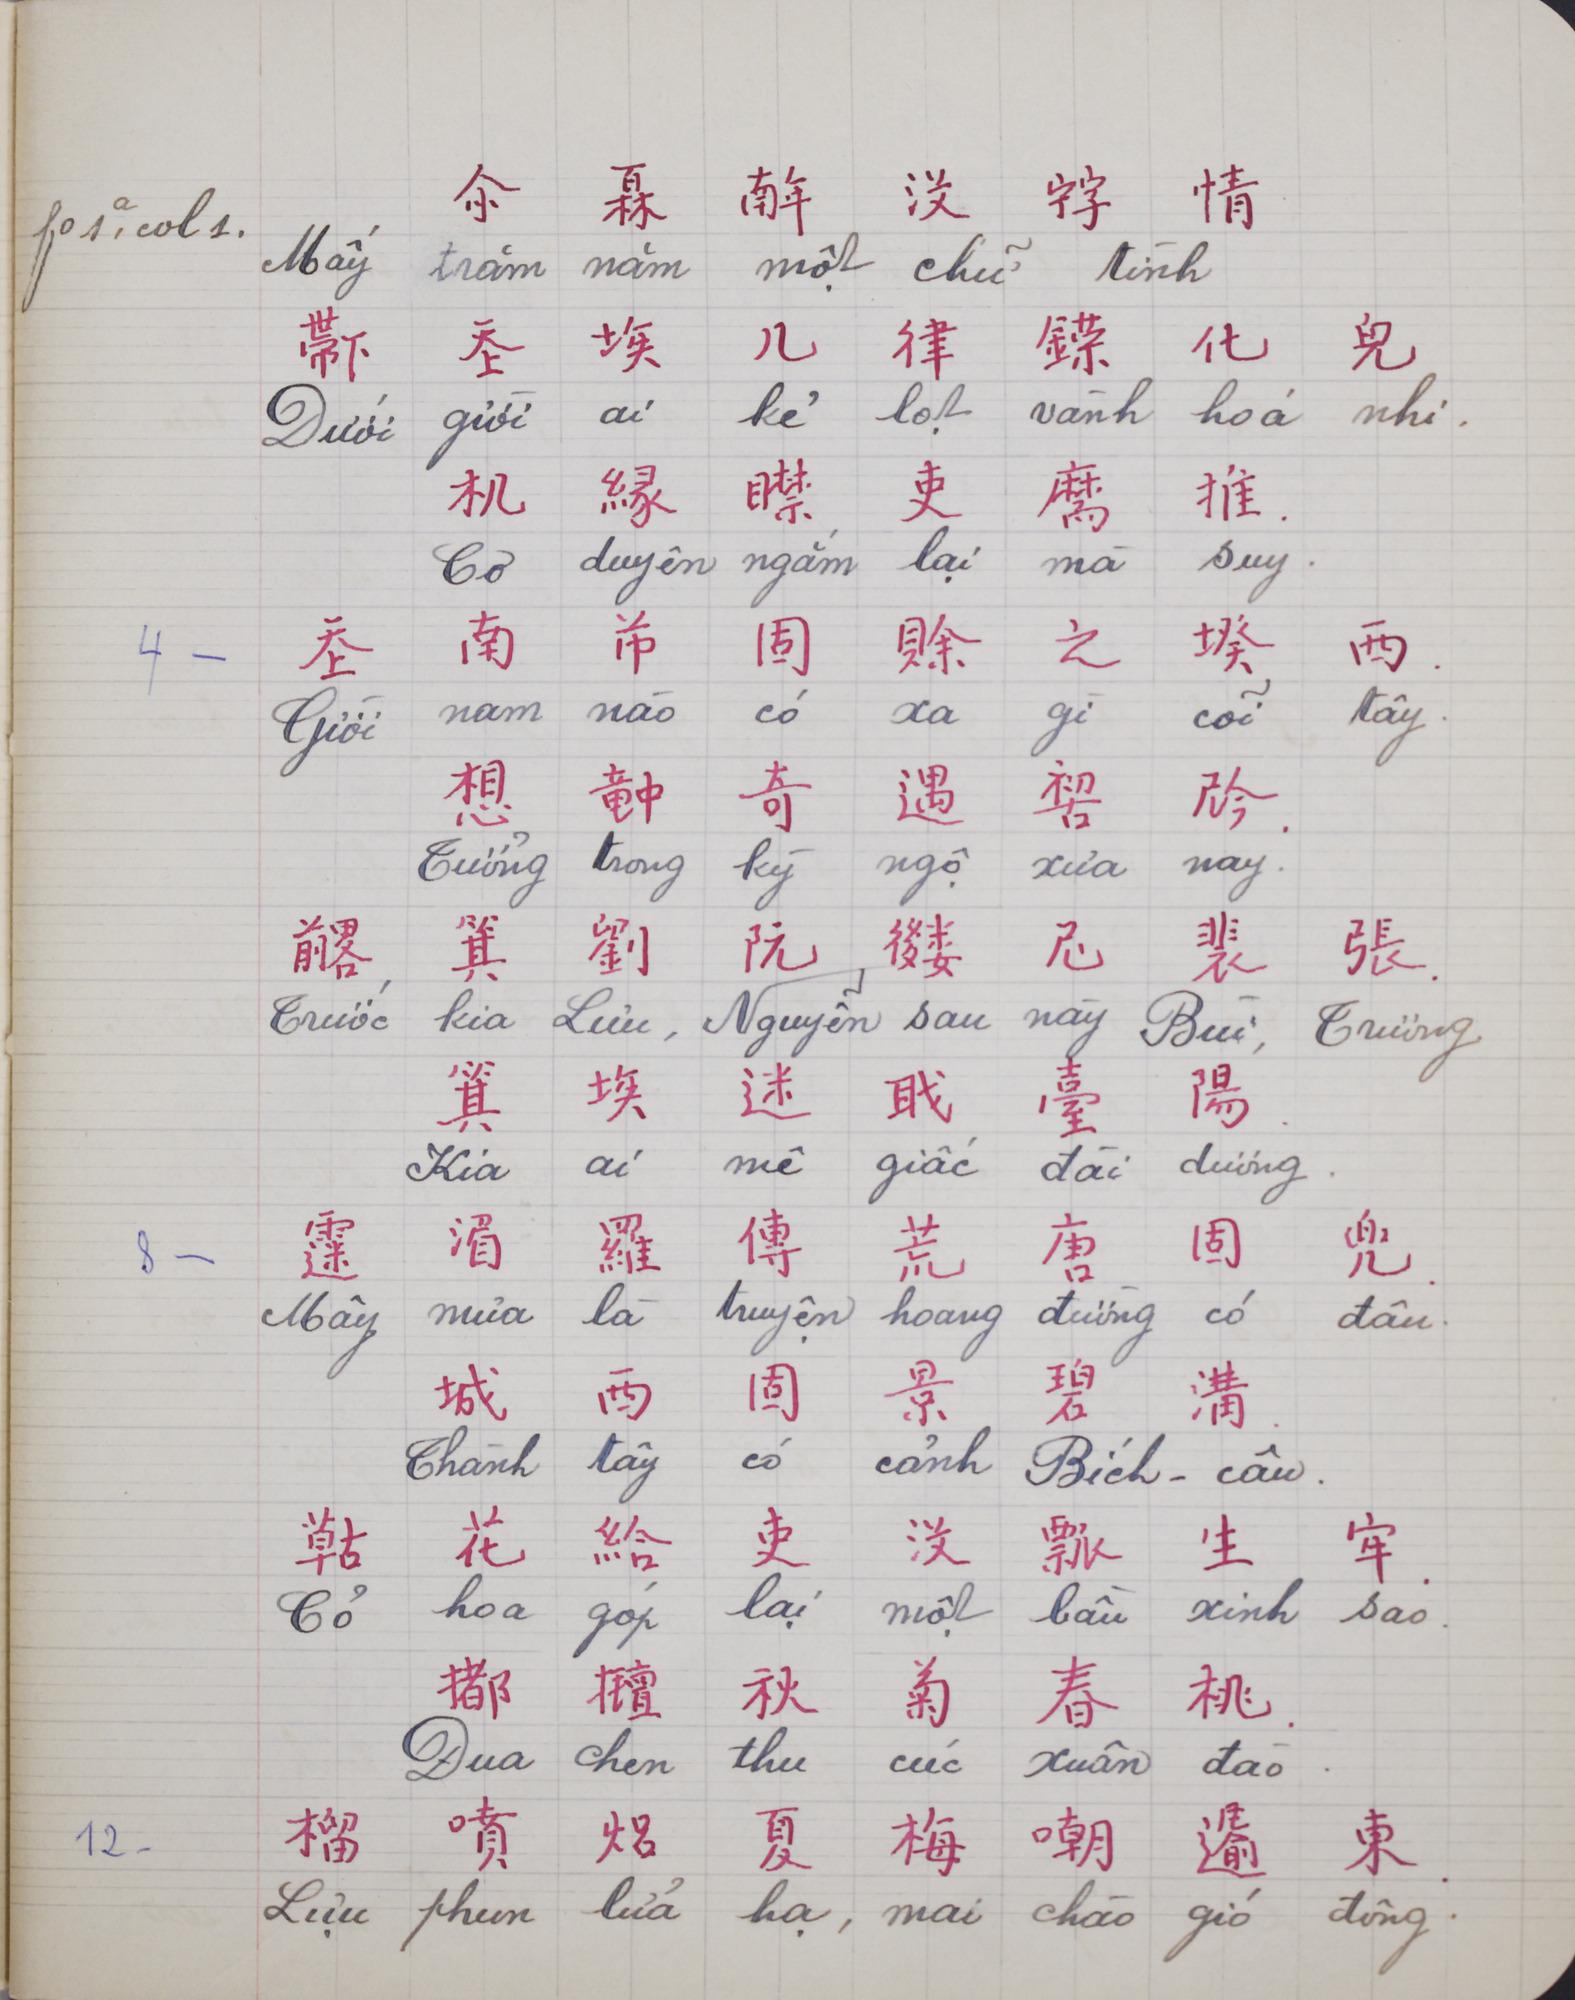 fo 1a, col 1.
尒 𤾓 𢆥 沒 𡦂 情
Mấy trăm năm một chữ tình
𤲂 𡗶 埃 几 律 鑅 化 兒
Dưới giời ai kẻ lọt vành hoá nhi.
机 縁 𥋴 吏 麿 推.
Cơ duyên ngắm lại mà suy.
4 - 𡗶 南 芇 固 賒 之 𡎝 西.
Giời nam nào có xa gì cõi tây.
想 𥪝 奇 遇 𠸗 𫢩.
Tưởng trong kỳ ngộ xưa nay.
𠓀 箕 劉 阮 𡢐 尼 裴 張.
Trước kia Lưu, Nguyễn sau này Bùi, Trương
箕 埃 迷 聀 臺 陽.
Kia ai mê giấc đài dương.
8 - 𩄲 湄 羅 傳 荒 唐 固 兜.
Mây mưa là truyện hoang đường có đâu.
城 西 固 景 碧 溝.
Thành tây có cảnh Bích-câu.
𦹵 花 給 吏 沒 瓢 生 牢.
Cỏ hoa góp lại một bầu xinh sao.
𢵋 𢷀 秋 菊 春 桃.
Đua chen thu cúc xuân đào.
12 - 榴 噴 焒 夏 梅 嘲 𨔍 東.
Lựu phun lửa hạ, mai chào gió đông.